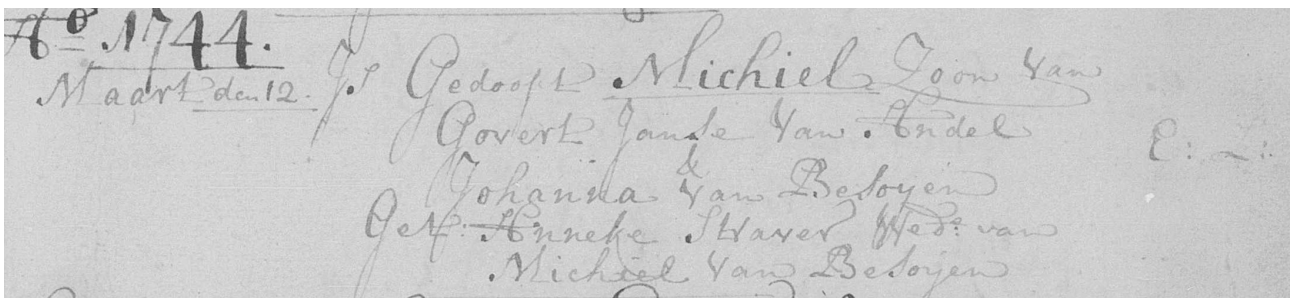 Ao 1744.
Maart den 12. Is Gedoopt Michiel Zoon van
Govert Janse Van Andel
&
Johanna Van Besoyen
Get: Anneke Straver Wede: van
Michiel Van Besoyen
E: